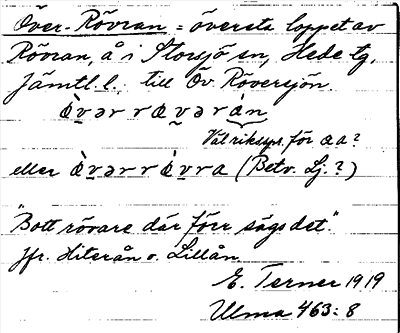 Över-Rövran = översta loppet av
Rövran, å i Storsjö sn, Hede tg,
Jämtl. l., till Öv. Röversjön.
ö̀vər rövərán
Väl rikspr. för aa?
eller ö̀vərrö̀vra (Betv. Lj.?)
"Bott rövare där förr sägs det."
Jfr. Hiterån o. Lillån
E. Terner 1919
Ulma 463:8